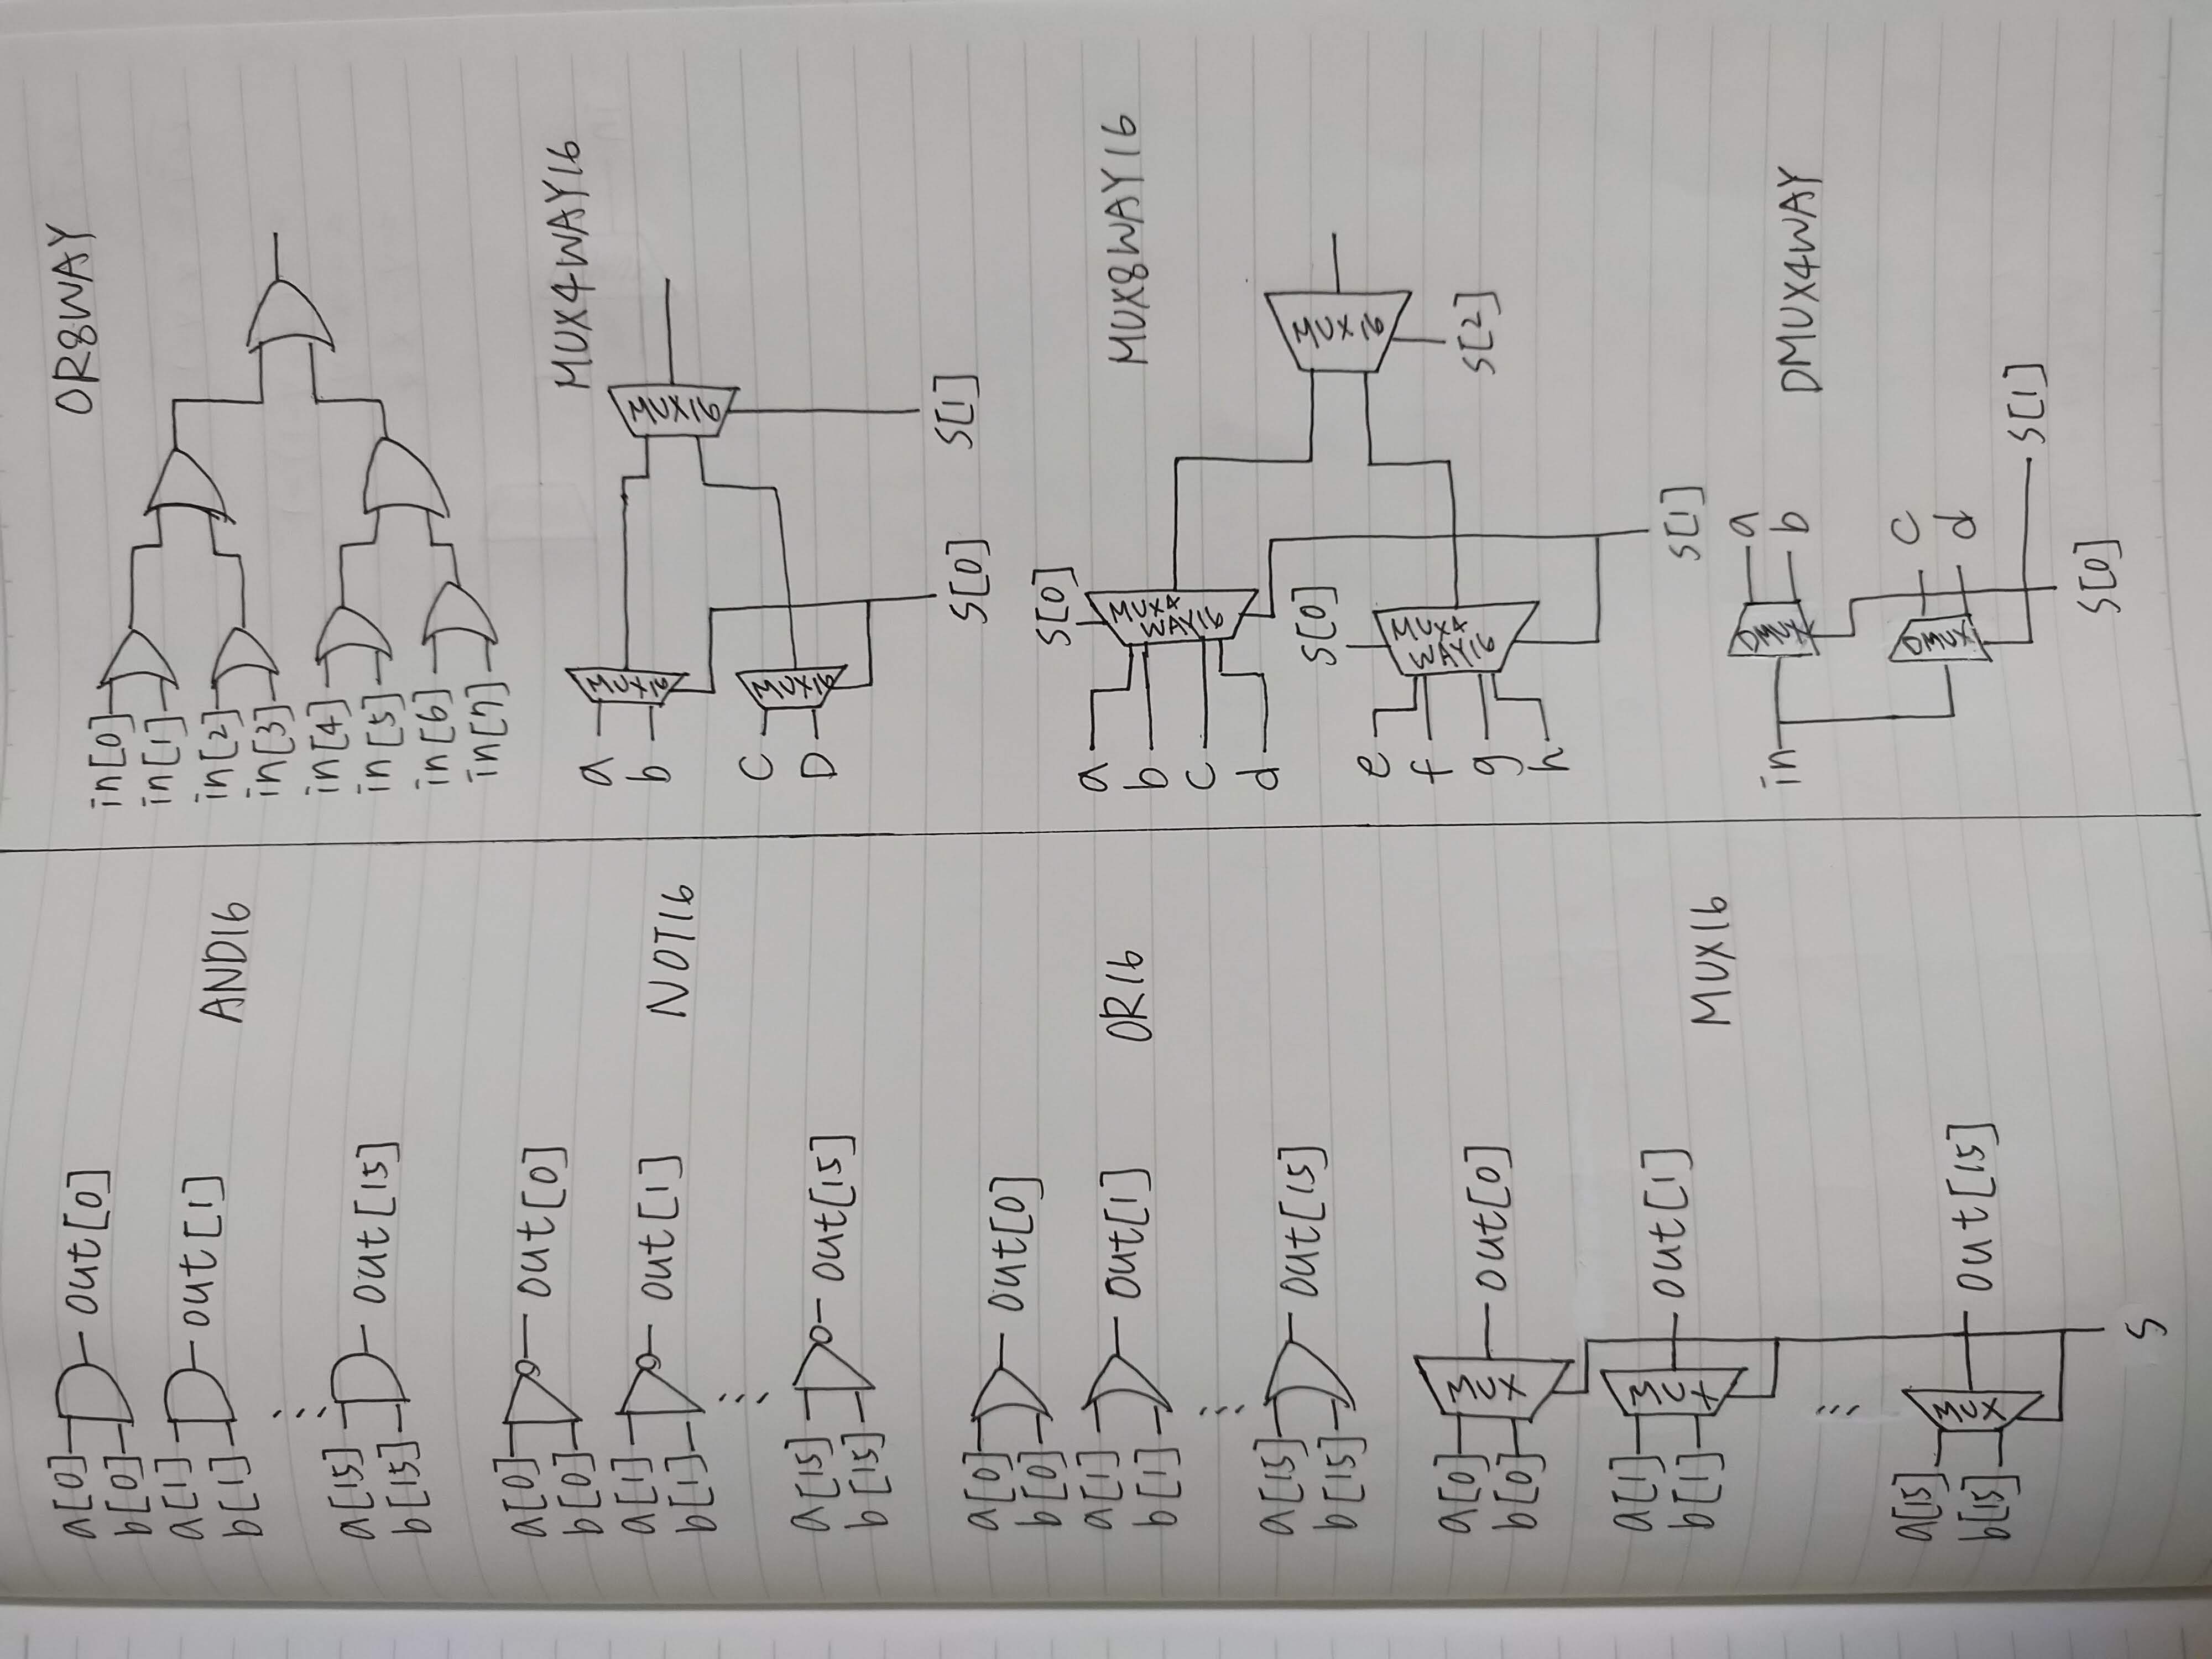 a[0]
b[0]
out[0]
a[1]
b[1]
out[1]
AND16
a[15]
b[15]
out[15]
a[0]
b[0]
out[0]
a[1]
b[1]
out[1]
NOT16
a[15]
b[15]
out[15]
a[0]
b[0]
out[0]
a[1]
b[1]
out[1]
OR16
a[15]
b[15]
out[15]
a[0]
b[0]
MUX
out[0]
a[1]
b[1]
MUX
out[1]
MUX16
a[15]
b[15]
MUX
out[15]
S
OR8WAY
in[0]
in[1]
in[2]
in[3]
in[4]
in[5]
in[6]
in[7]
MUX4WAY16
a
b
MUX16
MUX16
C
D
MUX16
S[0]
S[1]
S[0]
a
b
c
d
MUX4
WAY16
MUX8WAY16
S[0]
e
f
g
h
MUX4
WAY16
MUX16
S[2]
S[1]
in
DMUX
a
b
DMUX4WAY
DMUX
c
d
S[1]
S[0]